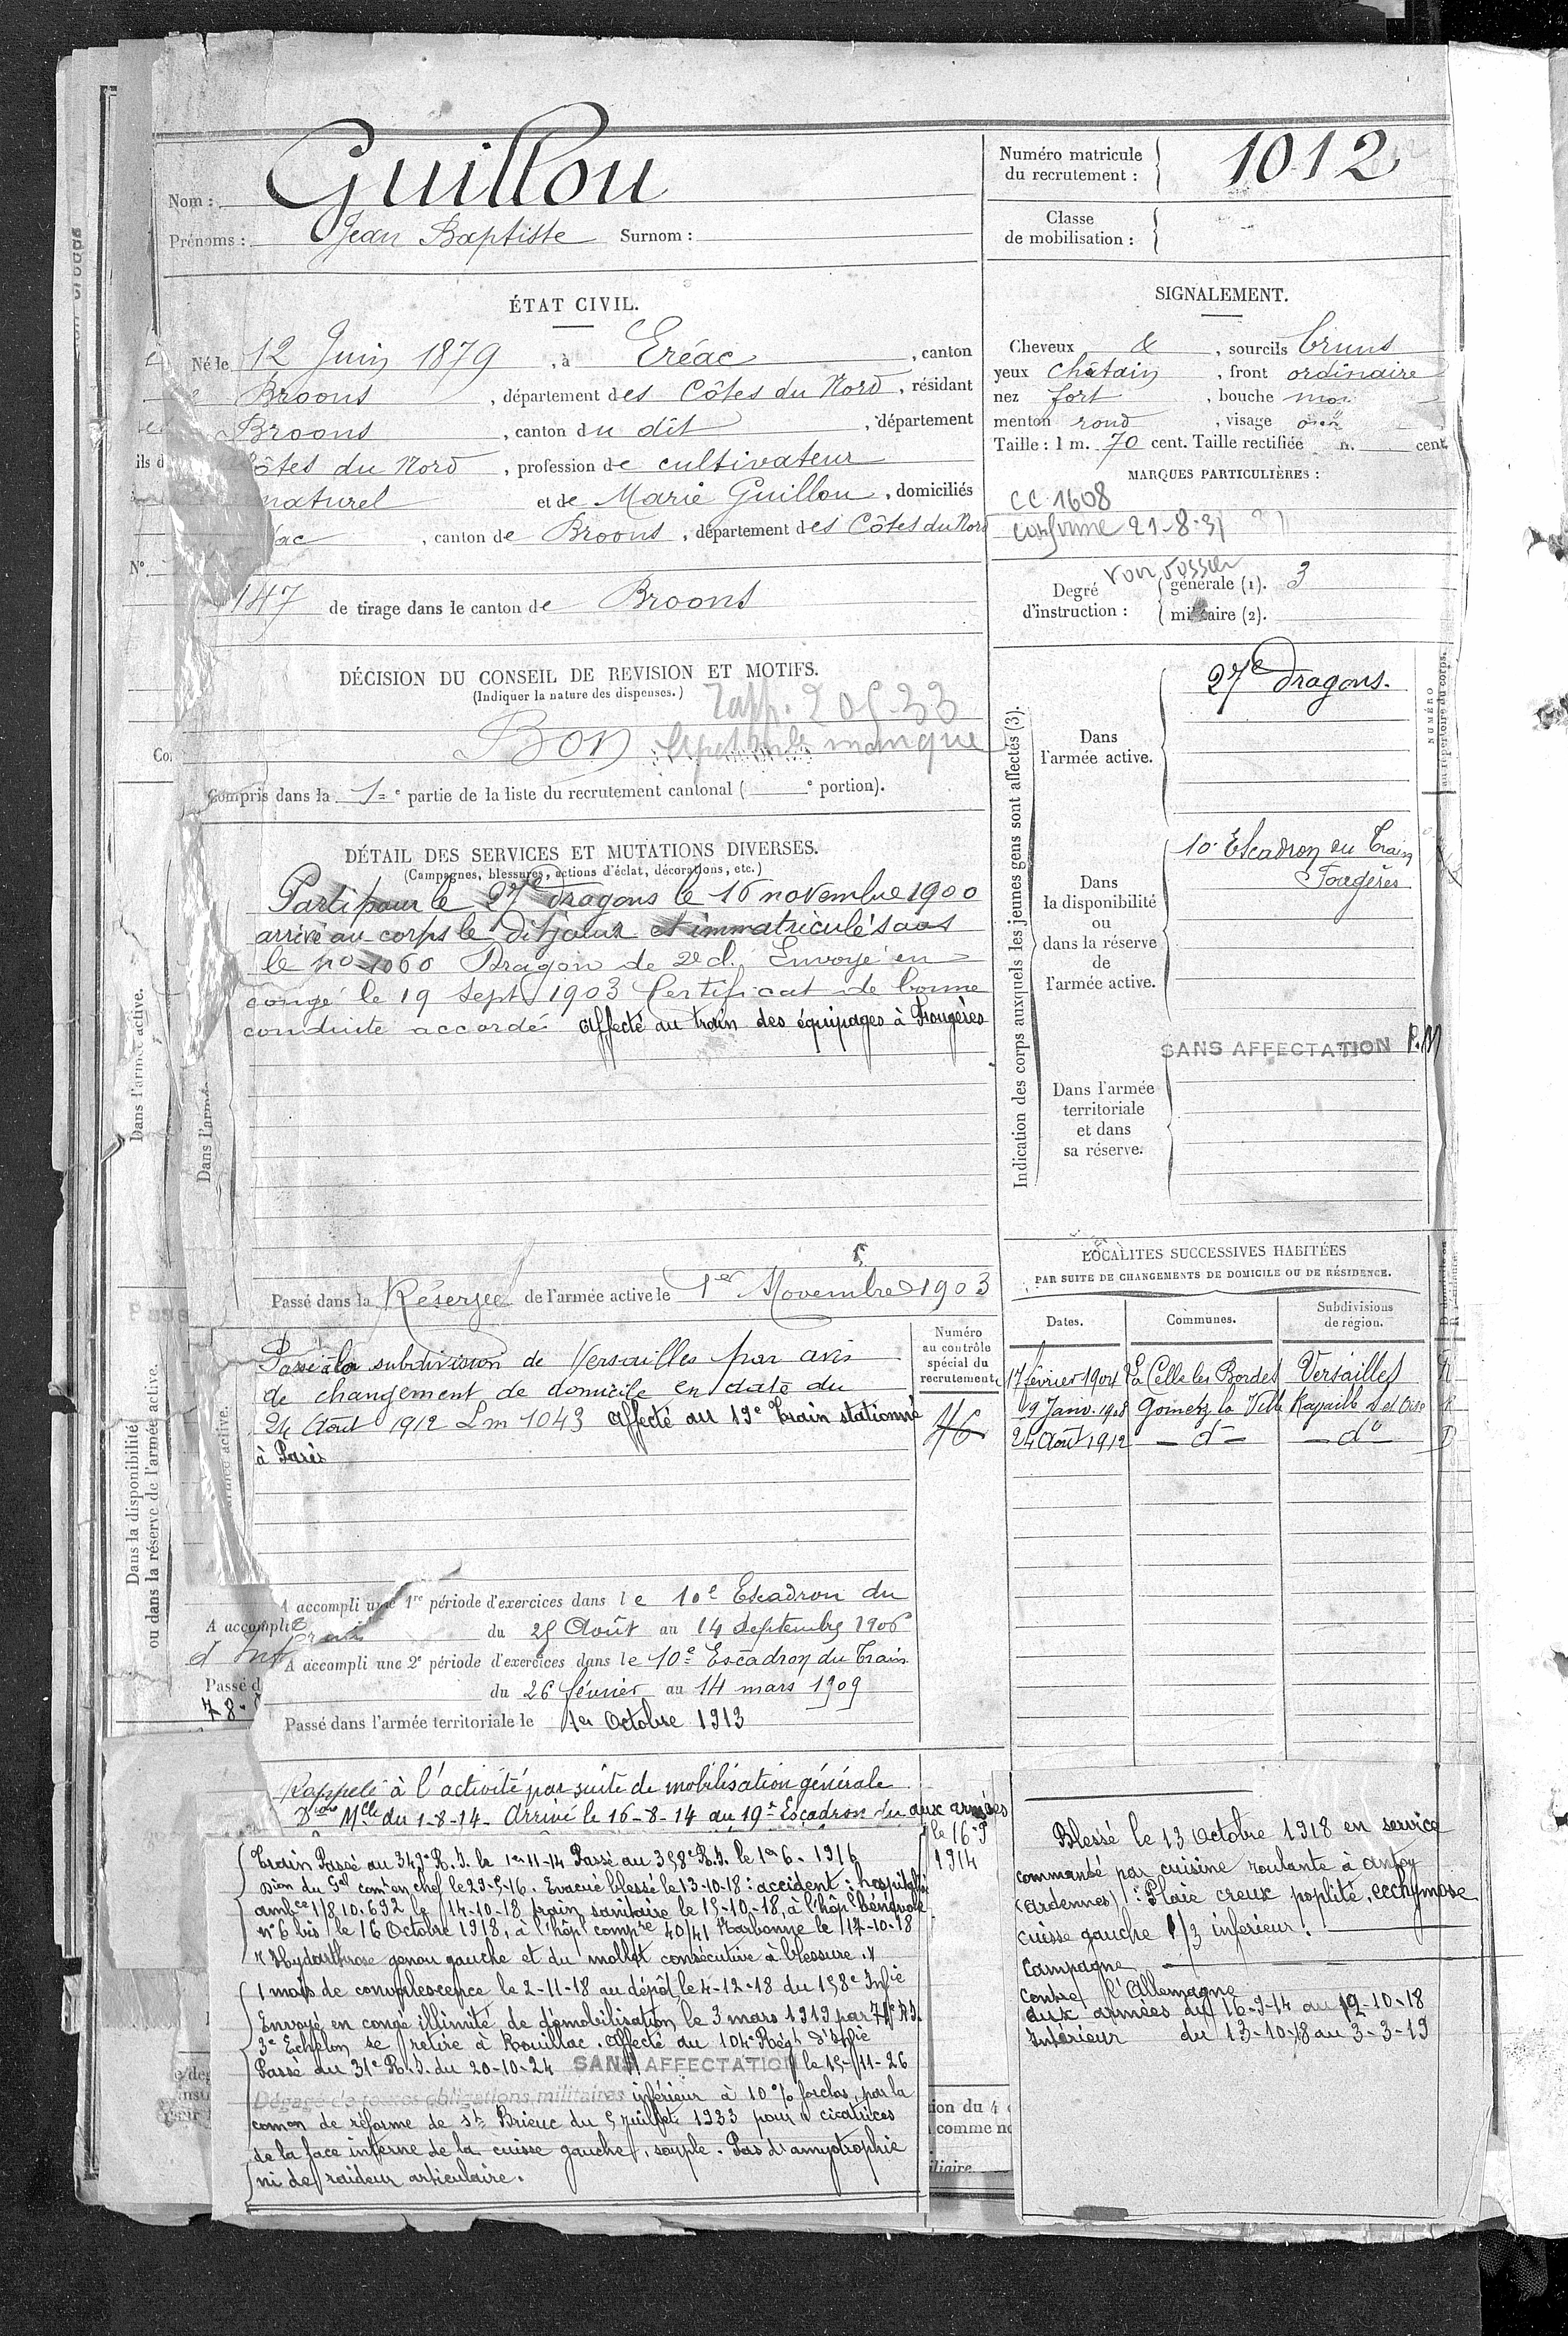 Guillou
Nom :
Prénoms : Jean Baptiste Surnom :
Numéro matricule du recrutement : 1012
Classe de mobilisation :
ÉTAT CIVIL.
Né le 12 Juin 1879, à Eréac, canton
Broons, département des Côtes du Nord, résidant
Broons, canton du dit, département
Côtes du Nord, profession de cultivateur
naturel et de Marie Guillou, domiciliés
ac, canton de Broons, département des Côtes du Nord
N°
147 de tirage dans le canton de Broons
SIGNALEMENT.
Cheveux &, sourcils bruns
yeux châtain, front ordinaire
nez fort, bouche
menton rond, visage
Taille : 1 m. 70 cent. Taille rectifiée m. cent.
MARQUES PARTICULIÈRES :
CC 1608
conforme 21-8-31
voir dossier
Degré d'instruction : générale (1). 3
militaire (2).
DÉCISION DU CONSEIL DE REVISION ET MOTIFS.
(Indiquer la nature des dispenses.)
Bon manque
Compris dans la 1re partie de la liste du recrutement cantonal ( e portion).
DÉTAIL DES SERVICES ET MUTATIONS DIVERSES.
(Campagnes, blessures, actions d'éclat, décorations, etc.)
Parti pour le 27e dragons le 16 novembre 1900
arrivé au corps le dit jour et immatriculé sous
le no 1060 Dragon de 2e cl. Envoyé en
congé le 19 Sept 1903 Certificat de bonne
conduite accordé affecté au train des équipages à Fougères
Passé dans la Réserve de l'armée active le 1er Novembre 1903
Passé à la subdivision de Versailles par avis
de changement de domicile en date du
24 Août 1912 Lm 1043 affecté au 19e Train stationné
à Paris
Numéro au contrôle spécial du recrutement
A accompli une 1re période d'exercices dans le 10e Escadron du
Train du 25 Août au 14 Septembre 1906
A accompli une 2e période d'exercices dans le 10e Escadron du Train
du 26 février au 14 mars 1909
Passé dans l'armée territoriale le 1er Octobre 1913
Rappelé à l'activité par suite de mobilisation générale
Mlle du 1-8-14. Arrivé le 16-8-14 au 19e Escadron du aux armées
le 16-9
1914
Train Passé au 343e R.I. le 1er 11-14 Passé au 358e R.I. le 1er 6. 1916
Don du Gal comt en chef le 29-5-16. Evacué blessé le 13-10-18 : accident : hospitalisé
ambce 1/8 10.692 le 14-10-18 train sanitaire le 15-10-18, à l'hôpl bénévole
n° 6 bis le 16 Octobre 1918, à l'hôpl compre 40/41 Narbonne le 17-10-18
"Hydarthrose genou gauche et du mollet consécutive à blessure."
1 mois de convalescence le 2-11-18 au dépôt le 4-12-18 du 158e Infie
Envoyé en congé illimité de démobilisation le 3 mars 1919 par R.I.
3e Echelon se retire à Rouillac. Affecté au 104e Régt d'Infie
Passé au 31e R.I. du 20-10-24 SANS AFFECTATION le 15-11-26
Dégagé de toutes obligations militaires inférieur à 10% forclos, par la
comon de réforme de St Brieuc du 5 juillet 1933 pour cicatrices
de la face interne de la cuisse gauche, souple. Pas d'amyotrophie
ni de raideur articulaire.
Indication des corps auxquels les jeunes gens sont affectés (3).
Dans l'armée active.
27e dragons.
Dans la disponibilité ou dans la réserve de l'armée active.
10e Escadron du Train
Fougères
SANS AFFECTATION P.M
Dans l'armée territoriale et dans sa réserve.
NUMÉRO au répertoire du corps.
LOCALITÉS SUCCESSIVES HABITÉES
PAR SUITE DE CHANGEMENTS DE DOMICILE OU DE RÉSIDENCE.
Dates. Communes. Subdivisions de région.
17 février 1904 La Celle les Bordes Versailles R
19 Janv. 1908 Gometz la Ville R
24 Août 1912 - do - - do - D
Blessé le 13 Octobre 1918 en service
commandé par cuisine roulante à
(Ardennes) : Plaie creux poplité, ecchymose
cuisse gauche 1/3 inférieur.
Campagne
Contre l'Allemagne
aux armées du 16-9-14 au 12-10-18
Intérieur du 13-10-18 au 3-3-19
Dans l'armée active.
Dans la disponibilité
ou dans la réserve de l'armée active.
A accompli
Passé d